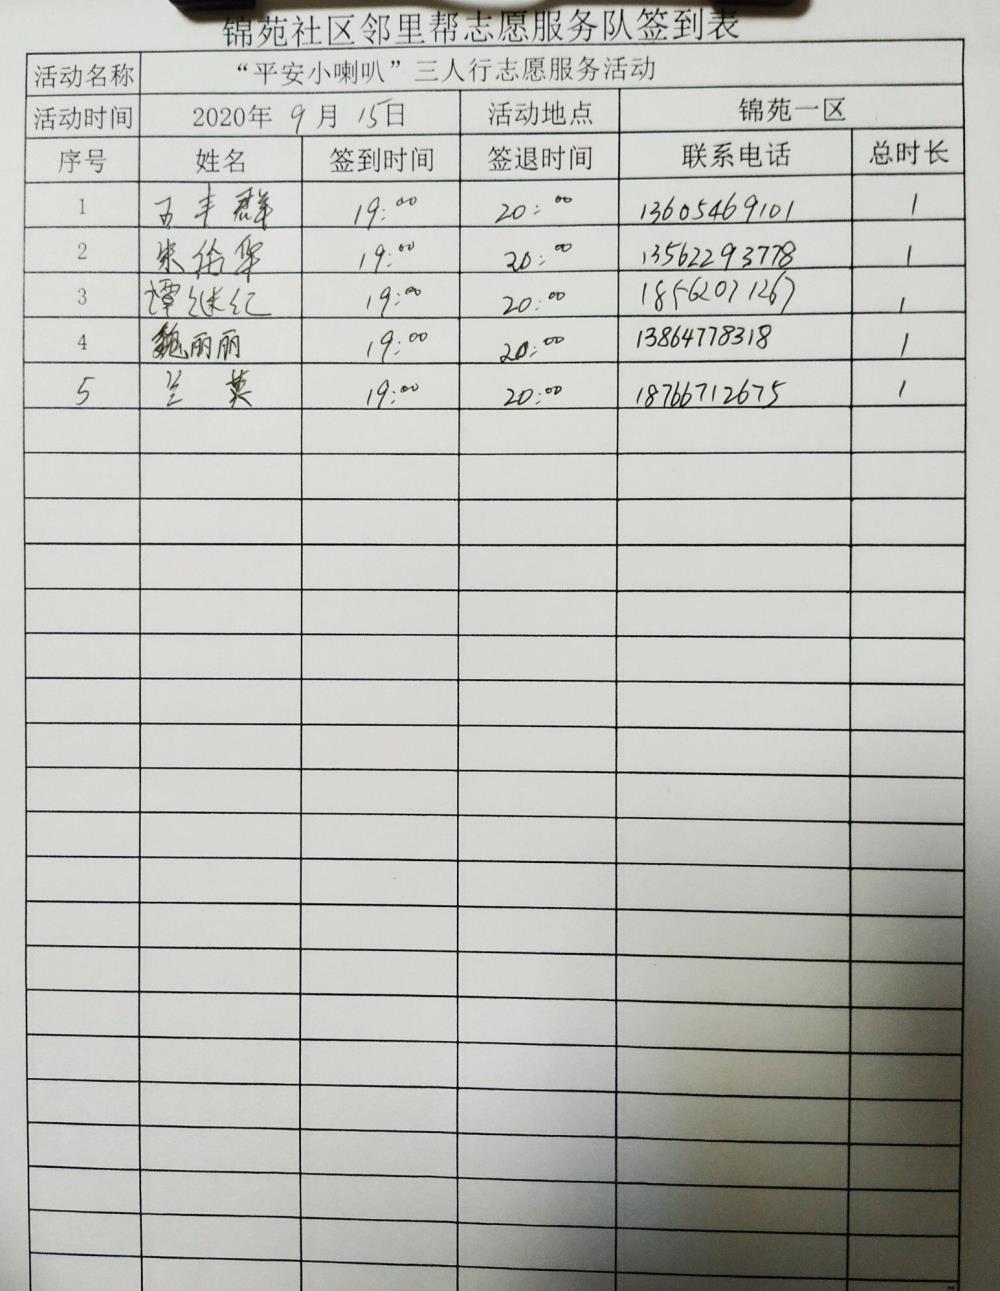 锦苑社区邻里帮志愿服务队签到表
活动名称 “平安小喇叭”三人行志愿服务活动
活动时间 2020年 9 月 15日 活动地点 锦苑一区
序号 姓名 签到时间 签退时间 联系电话 总时长
1 丰群 19:00 20:00 13605469101 1
2 华 19:00 20:00 13562293778 1
3 谭继仁 19:00 20:00 18562071267 1
4 魏丽丽 19:00 20:00 13864778318 1
5 兰英 19:00 20:00 18766712675 1